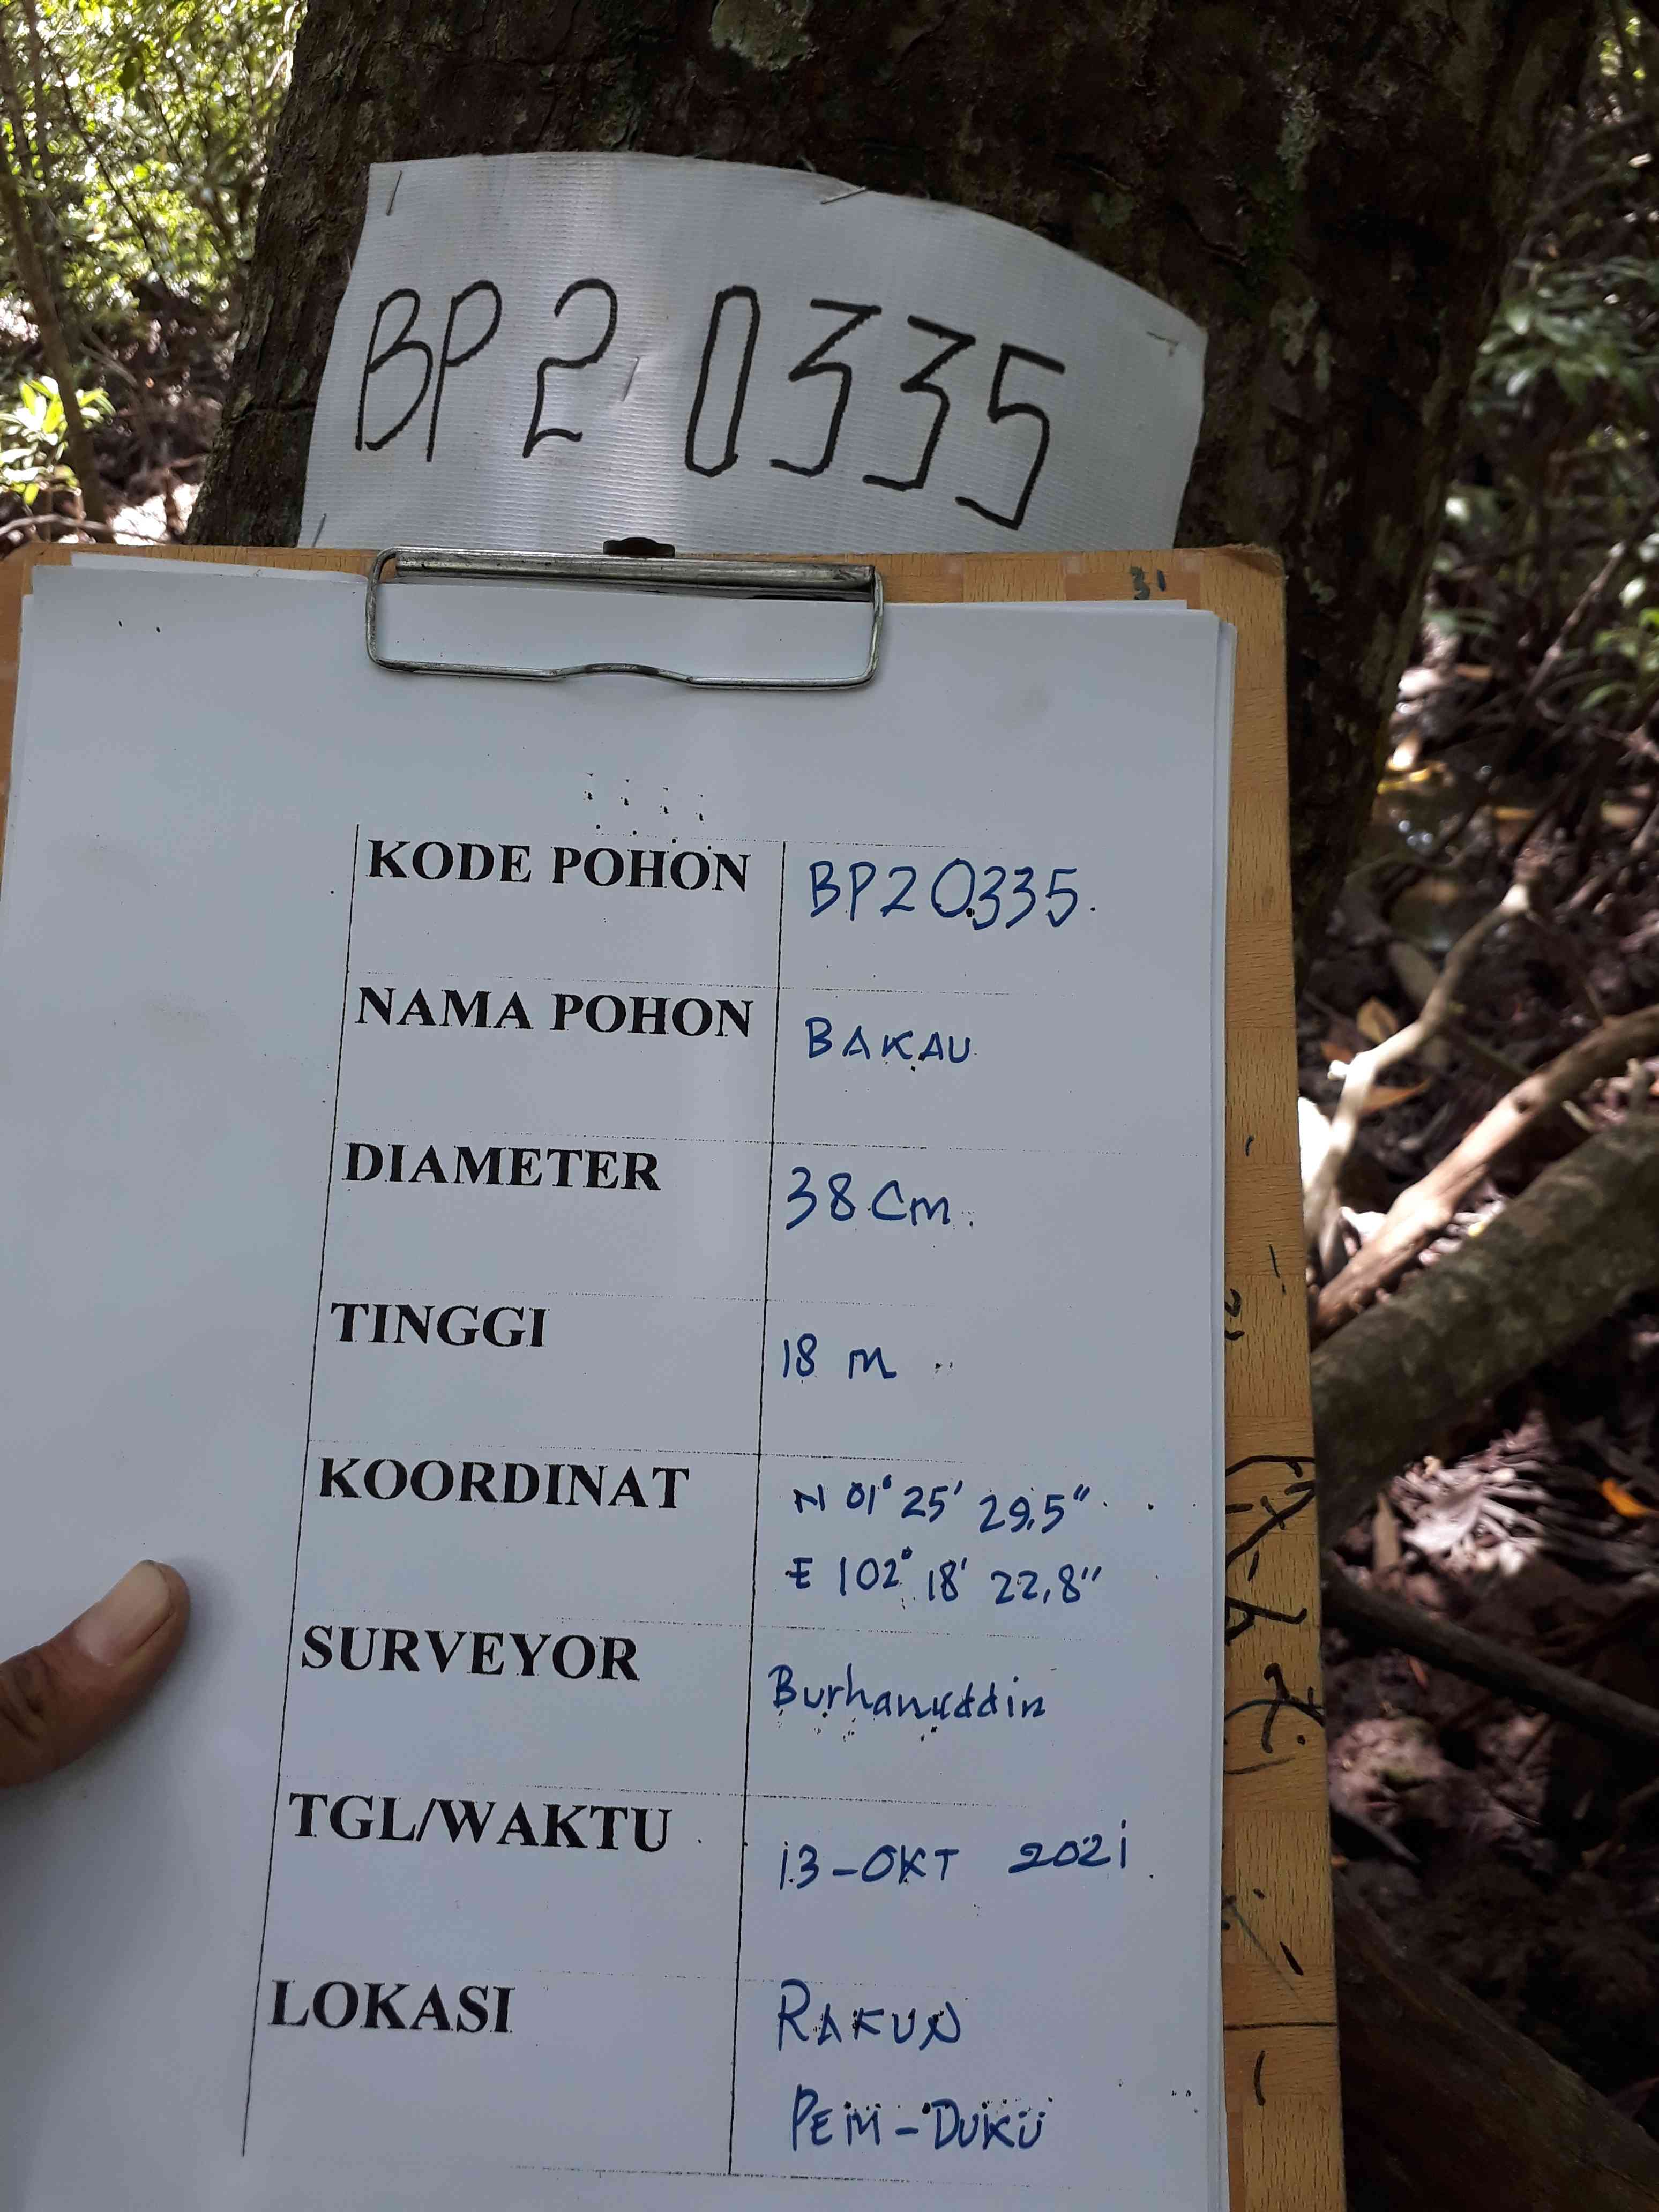 BP2 0335
31
KODE POHON BP20335.
NAMA POHON BAKAU
DIAMETER 38 Cm.
TINGGI 18 m
KOORDINAT N 01° 25' 29,5"
E 102° 18' 22,8"
SURVEYOR Burhanuddin
TGL/WAKTU 13-OKT 2021
LOKASI RAKUN
PEM-DUKU